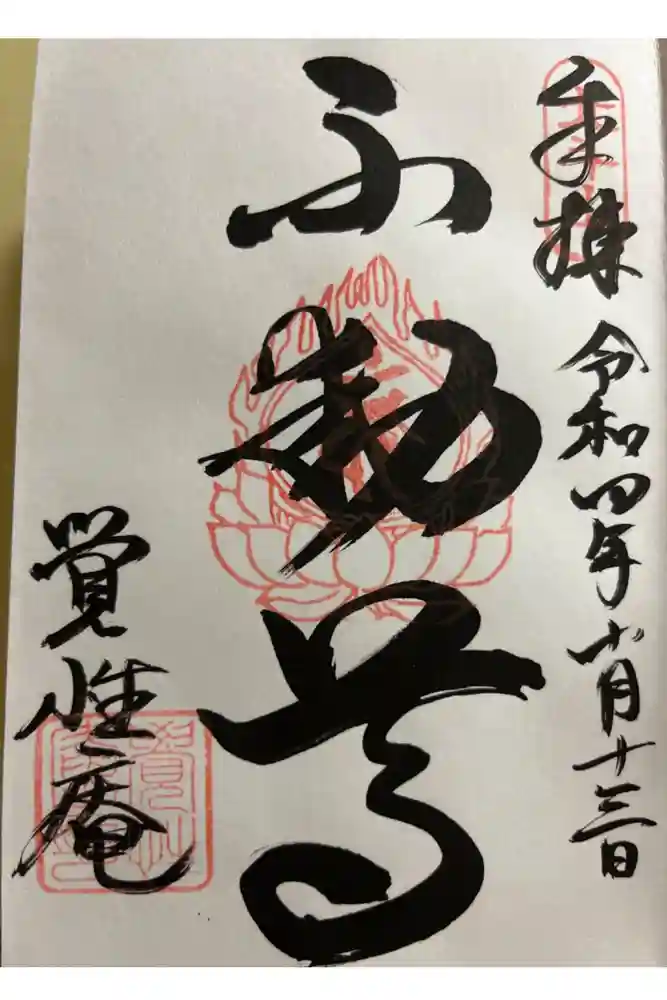 奉拝
令和四年 月十三日
不動尊
覚性庵